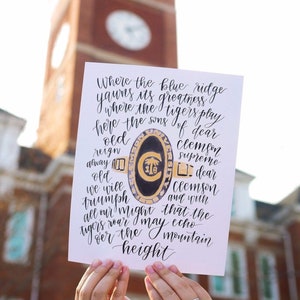 Where the blue ridge
yawns its greatness
where the tigers play
here the sons of dear
old Clemson
reign supreme
alway dear
old Clemson
we will and with
triumph
all our might that the
tigers roar may echo
o'er the mountain
height